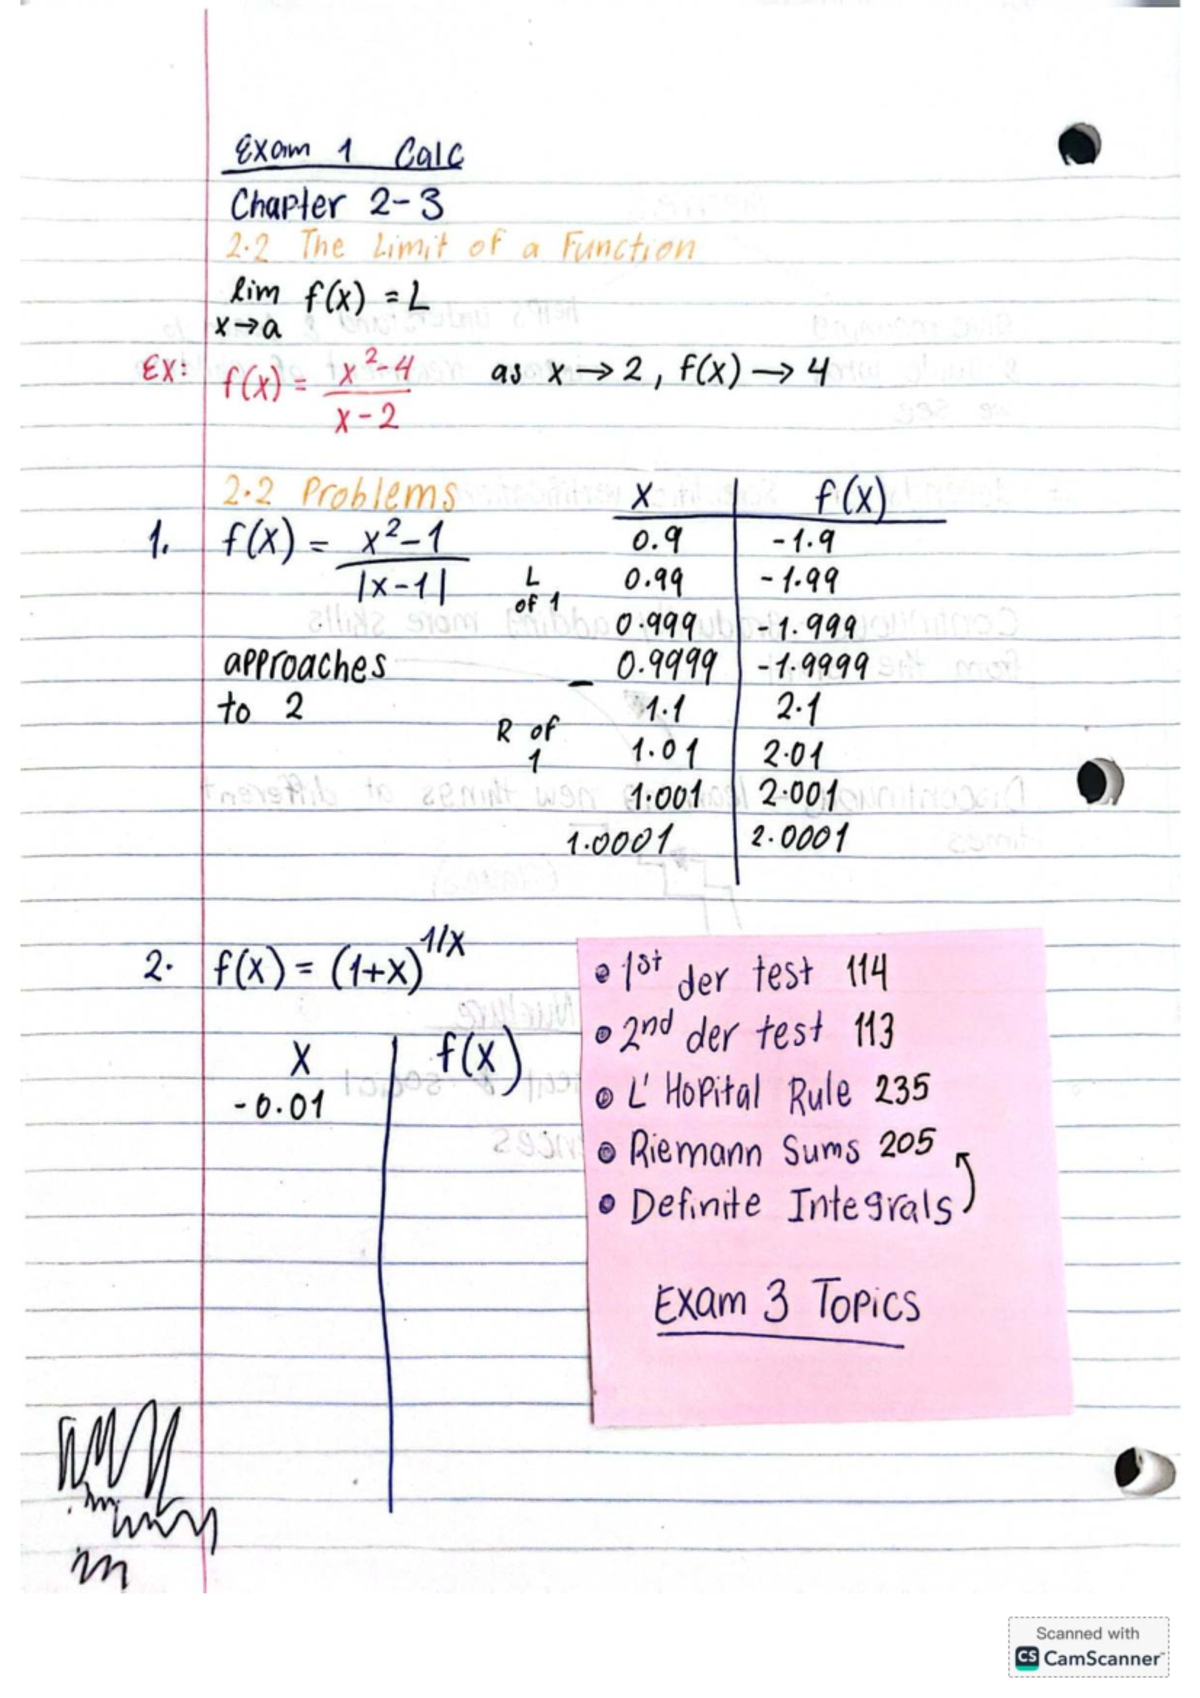 Exam 1 Calc
Chapter 2-3
2.2 The Limit of a Function
lim f(x) = L
x→a
Ex: f(x) = x²-4 / x-2 as x → 2, f(x) → 4
2.2 Problems
1. f(x) = x²-1 / |x-1|
approaches
to 2
x f(x)
L of 1
0.9 -1.9
0.99 -1.99
0.999 -1.999
0.9999 -1.9999
R of 1
1.1 2.1
1.01 2.01
1.001 2.001
1.0001 2.0001
2. f(x) = (1+x)^1/x
x f(x)
-0.01
• 1st der test 114
• 2nd der test 113
• L' Hopital Rule 235
• Riemann Sums 205
• Definite Integrals
Exam 3 Topics
Scanned with
CS CamScanner